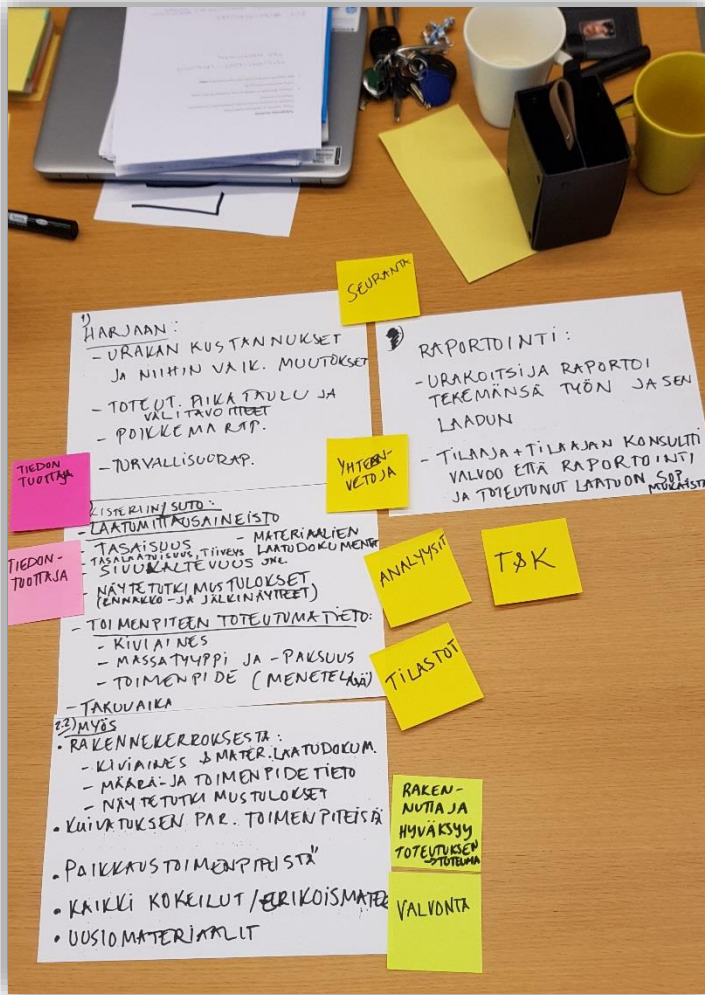 SEURANTA
1)
HARJAAN:
- URAKAN KUSTANNUKSET
JA NIIHIN VAIK. MUUTOKSET
- TOTEUT. AIKATAULU JA
VÄLITAVOITTEET
- POIKKEMARAP.
- TURVALLISUUSRAP.
RAPORTOINTI:
- URAKOITSIJA RAPORTOI
TEKEMÄNSÄ TYÖN JA SEN
LAADUN
- TILAAJA + TILAAJAN KONSULTTI
VALVOO ETTÄ RAPORTOINTI
JA TOTEUTUNUT LAATU ON SOP.
MUKAISTA
TIEDON
TUOTTAJA
YHTEEN-
VETOJA
REKISTERIIN/SUTO:
- LAATUMITTAUSAINEISTO
- TASAISUUS
- MATERIAALIEN
LAATUDOKUMENTIT
- TASALAATUISUUS, TIIVEYS
- SIVUKALTEVUUS JNE.
- NÄYTETUTKIMUSTULOKSET
(ENNAKKO- JA JÄLKINÄYTTEET)
- TOIMENPITEEN TOTEUTUMATIETO:
- KIVIAINES
- MASSATYYPPI JA -PAKSUUS
- TOIMENPIDE (MENETELMÄ)
- TAKUUAIKA
TIEDON-
TUOTTAJA
ANALYYSIT
T&K
TILASTOT
2.2) MYÖS
• RAKENNEKERROKSESTA:
- KIVIAINES & MATER. LAATUDOKUM.
- MÄÄRÄ- JA TOIMENPIDETIETO
- NÄYTETUTKIMUSTULOKSET
• KUIVATUKSEN PAR. TOIMENPITEISTÄ
• PAIKKAUSTOIMENPITEISTÄ
• KAIKKI KOKEILUT/ERIKOISMATER
• UUSIOMATERIAALIT
RAKEN-
NUTTAJA
HYVÄKSYY
TOTEUTUKSEN
→TOTEUMA
VALVONTA